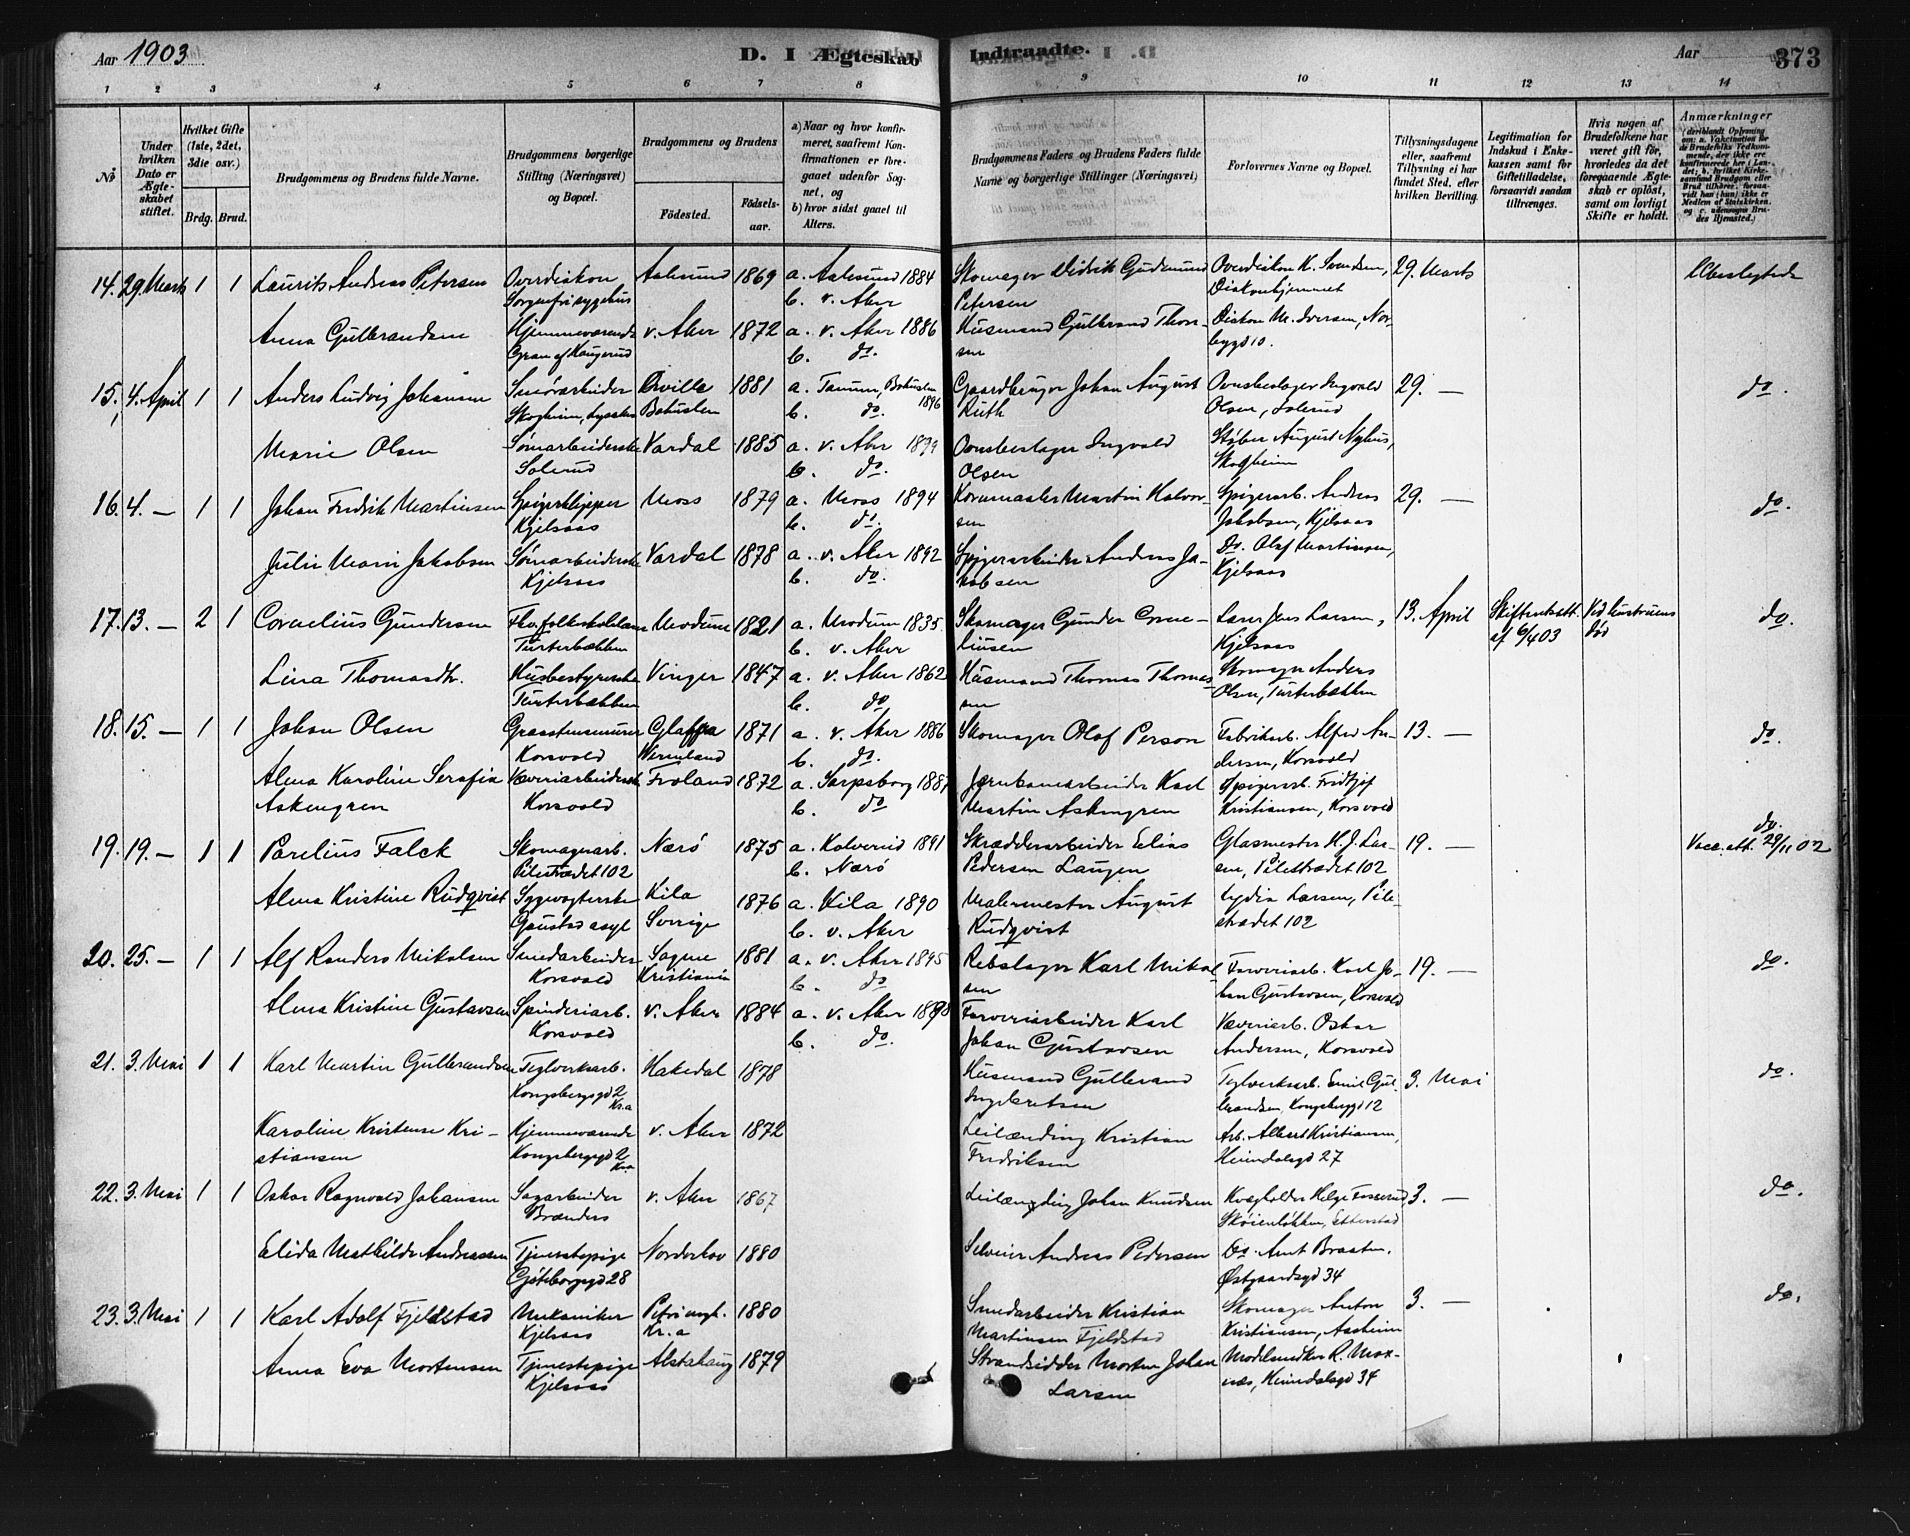 Aar 1903
D. I Ægteskab Indtraadte.
Aar
373
1 2 3 4 5 6 7 8 9 10 11 12 13 14
No
Under hvilken Dato er Ægteskabet stiftet.
Hvilket Gifte (1ste, 2det, 3die osv.)
Brdg. Brud.
Brudgommens og Brudens fulde Navne.
Brudgommens borgerlige Stilling (Næringsvei) og Bopæl.
Brudgommens og Brudens
Fødested.
Fødselsaar.
a) Naar og hvor konfirmeret, saafremt Konfirmationen er foregaaet udenfor Sognet, og
b) hvor sidst gaaet til Alters.
Brudgommens Faders og Brudens Faders fulde Navne og borgerlige Stillinger (Næringsvei)
Forlovernes Navne og Bopæl.
Tillysningsdagene eller, saafremt Tillysning ei har fundet Sted, efter hvilken Bevilling.
Legitimation for Indskud i Enkekassen samt for Giftetilladelse, forsaavidt saadan tiltrænges.
Hvis nogen af Brudefolkene har været gift før, hvorledes da det foregaaende Ægteskab er opløst, samt om lovligt Skifte er holdt.
Anmærkninger
14. 29. Marts 1 1 Laurits Andreas Petersen Overdiakon Sorgenfri sygehus Aalesund 1869 a. Aalesund 1884 b. v. Aker Skomager Didrik Gudmund Petersen Overdiakon K. Svendsen, Diakonhjemmet 29. Marts Ubeslegtede
Anna Gulbrandsen Hjemmeværende Gran af Haugerud v. Aker 1872 a. v. Aker 1886 b. do. Husmand Gulbrand Thorsen Diakon M. Iversen, Norbygd 10.
15. 4. April 1 1 Anders Ludvig Johansen Skogheim, Bohuslen 1881 a. Tanum, Bohuslen 1896 b. do. Gaardbruger Johan August Ruth Ovnsbeslager Ingvald Olsen, Solerud 29. — do.
Marie Olsen Sømarbeiderske Solerud Vardal 1885 a. v. Aker 1899 b. do. Ovnsbeslager Ingvald Olsen Støber August Nyhus, Skogheim
16. 4. — 1 1 Johan Fredrik Martinsen Spigerklipper Kjelsaas Moss 1879 a. Moss 1894 b. do. Kornmaaler Martin Halvorsen Spigerarb. Andreas Jakobsen, Kjelsaas 29. — do.
Julie Marie Jakobsen Sømarbeiderske Kjelsaas Vardal 1878 a. v. Aker 1892 b. do. Spigerarbeider Andreas Jakobsen Do. Olaf Martinsen, Kjelsaas
17. 13. — 2 1 Cornelius Gundersen Turterbakken Modum 1821 a. Modum 1835. b. v. Aker Skomager Gunder Corneliusen Jens Larsen, Kjelsaas 13. April Skifteratt. af 6/4 03 Ved hustruens død do.
Lina Thomasdtr. Husbestyrerske Turterbakken Vinger 1847 a. v. Aker 1862 b. do Husmand Thomas Thomassen Skomager Anders Olsen, Turterbakken
18. 15. — 1 1 Johan Olsen Graastensmurer Korsvold Glaffva Wermland 1871 a. v. Aker 1886 b. do. Skomager Olof Person Fabrikarb. Alfred Andersen, Korsvold 13. — do.
Alma Karoline Serafia Askengren Væveriarbeiderske Korsvold Froland 1872 a. Sarpsborg 1887 b. do Jernbanearbeider Karl Martin Askengren Spigerarb. Fridtjof Kristiansen, Korsvold
19. 19. — 1 1 Parelius Falck Skomagerarb. Pilestrædet 102 Nærø 1875 a. Kolvereid 1891 b. Nærø Skrædderarbeider Elias Pedersen Laugen Glasmester H. J. Larsen, Pilestrædet 102 19. — do. Vacc. att. 28/11 02
Alma Kristine Rudqvist Sygevogterske Gaustad asyl Kila Sverige 1876 a. Kila 1890 b. v. Aker Malermester August Rudqvist Lydia Larsen, Pilestrædet 102
20. 25. — 1 1 Alf Randers Mikalsen Smedarbeider Korsvold Sagene Kristiania 1881 a. v. Aker 1895 b. do Rebslager Karl Mikalsen Farveriarb. Karl Johan Gustavsen, Korsvold 19. — do.
Alma Kristine Gustavsen Spinderiarb. Korsvold v. Aker 1884 a. v. Aker 1898 b. do. Farveriarbeider Karl Johan Gustavsen Væveriarb. Oskar Andersen, Korsvold
21. 3. Mai 1 1 Karl Martin Gulbrandsen Teglverksarb. Kongsbergsgd 2 Kr.a Hakedal 1878 Husmand Gulbrand Ingebretsen Teglverksarb. Emil Gulbrandsen, Kongsbergd 12 3. Mai do.
Karoline Kristense Kristiansen Hjemmeværende Kongsbergsgd 2 Kr.a v. Aker 1872 Leilænding Kristian Fredriksen Arb. Albert Kristiansen, Heimdalsgd 27
22. 3. Mai 1 1 Oskar Ragnvald Johansen Sagarbeider Brænders v. Aker 1867 Leilænding Johan Knudsen Kvægholder Helge Fosserud, Skøienløkken, Etterstad 3. — do.
Elida Mathilde Andreassen Tjenestepige Gøteborgsgd 28 Norderhov 1880 Selveier Andreas Pedersen Do. Amt Braaten, Østgaardsgd 34
23. 3. Mai 1 1 Karl Adolf Fjeldstad Mekaniker Kjelsaas Petri mgh. Kr.a 1880 Smedarbeider Kristian Martinsen Fjeldstad Skomager Anton Kristiansen, Aasheim 3. — do.
Anna Eva Mortensen Tjenestepige Kjelsaas Alstahaug 1879 Strandsidder Morten Johan Larsen Modelsnedker R. Moxnæs, Heimdalsgd 34